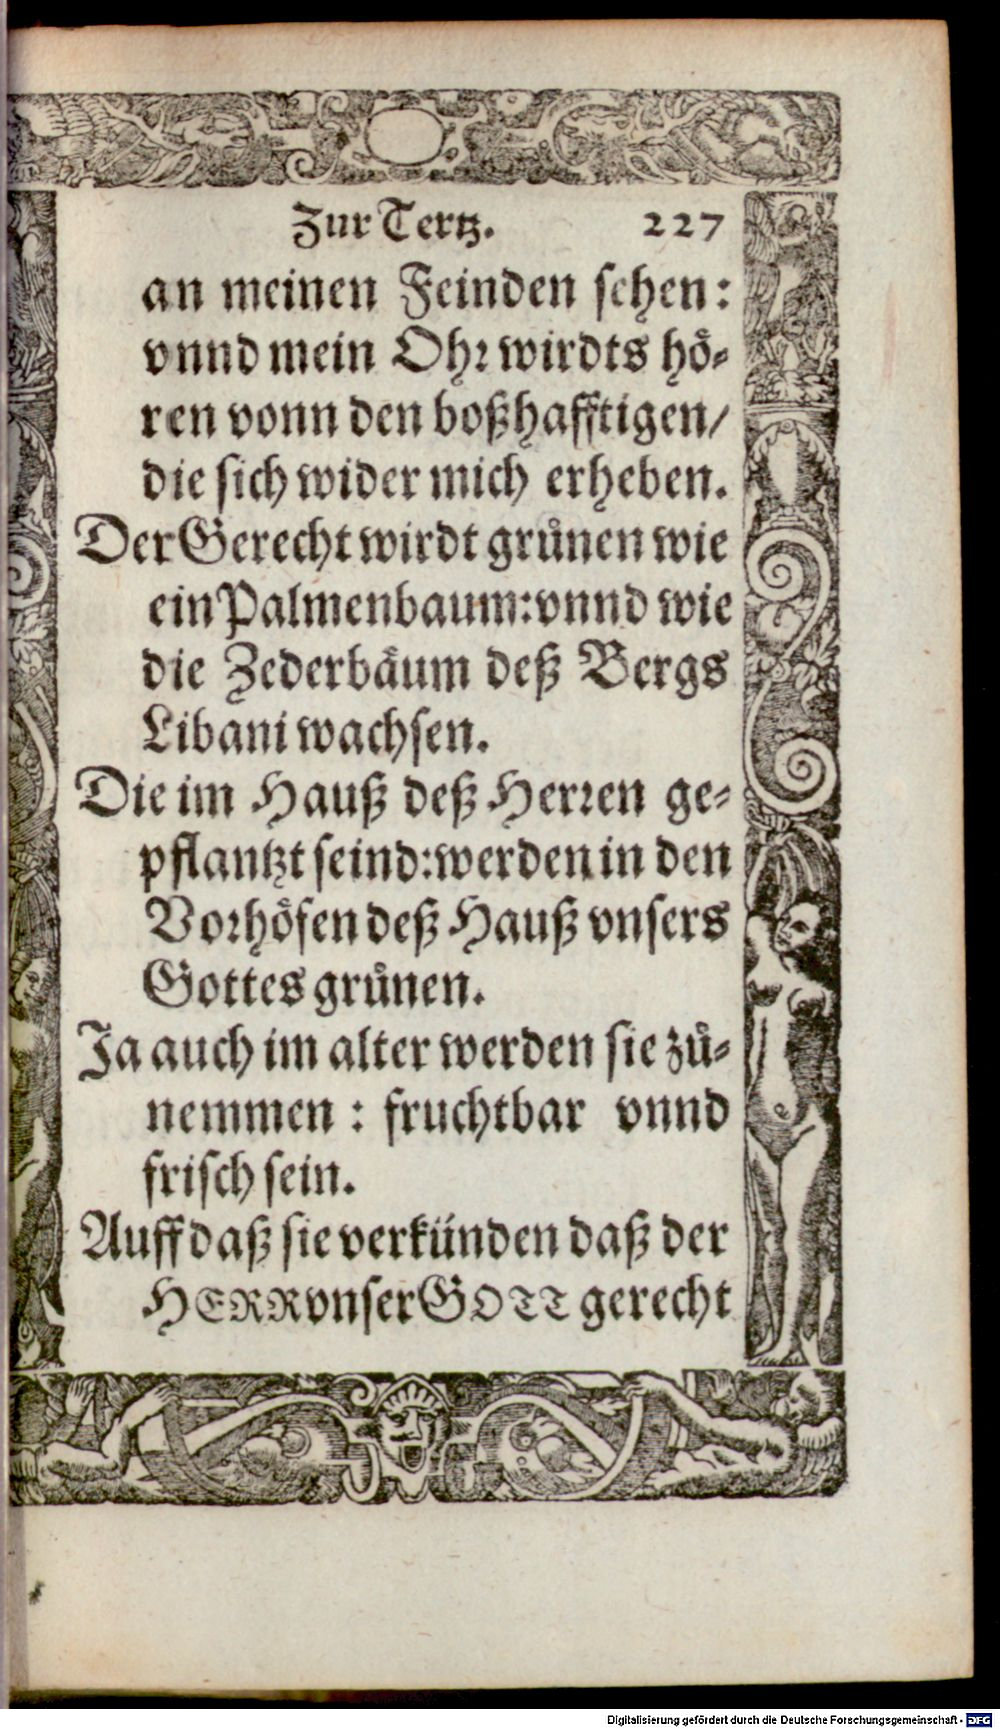 Zur Tertz. 227
an meinen Feinden sehen:
vnnd mein Ohr wirdts hö-
ren vonn den boßhafftigen/
die sich wider mich erheben.
Der Gerecht wirdt grůnen wie
ein Palmenbaum: vnnd wie
die Zederbäum deß Bergs
Libani wachsen.
Die im Hauß deß Herren ge-
pflantzt seind: werden in den
Vorhöfen deß Hauß vnsers
Gottes grůnen.
Ja auch im alter werden sie zů-
nemmen : fruchtbar vnnd
frisch sein.
Auff daß sie verkünden daß der
HERR vnser GOTT gerecht
Digitalisierung gefördert durch die Deutsche Forschungsgemeinschaft - DFG